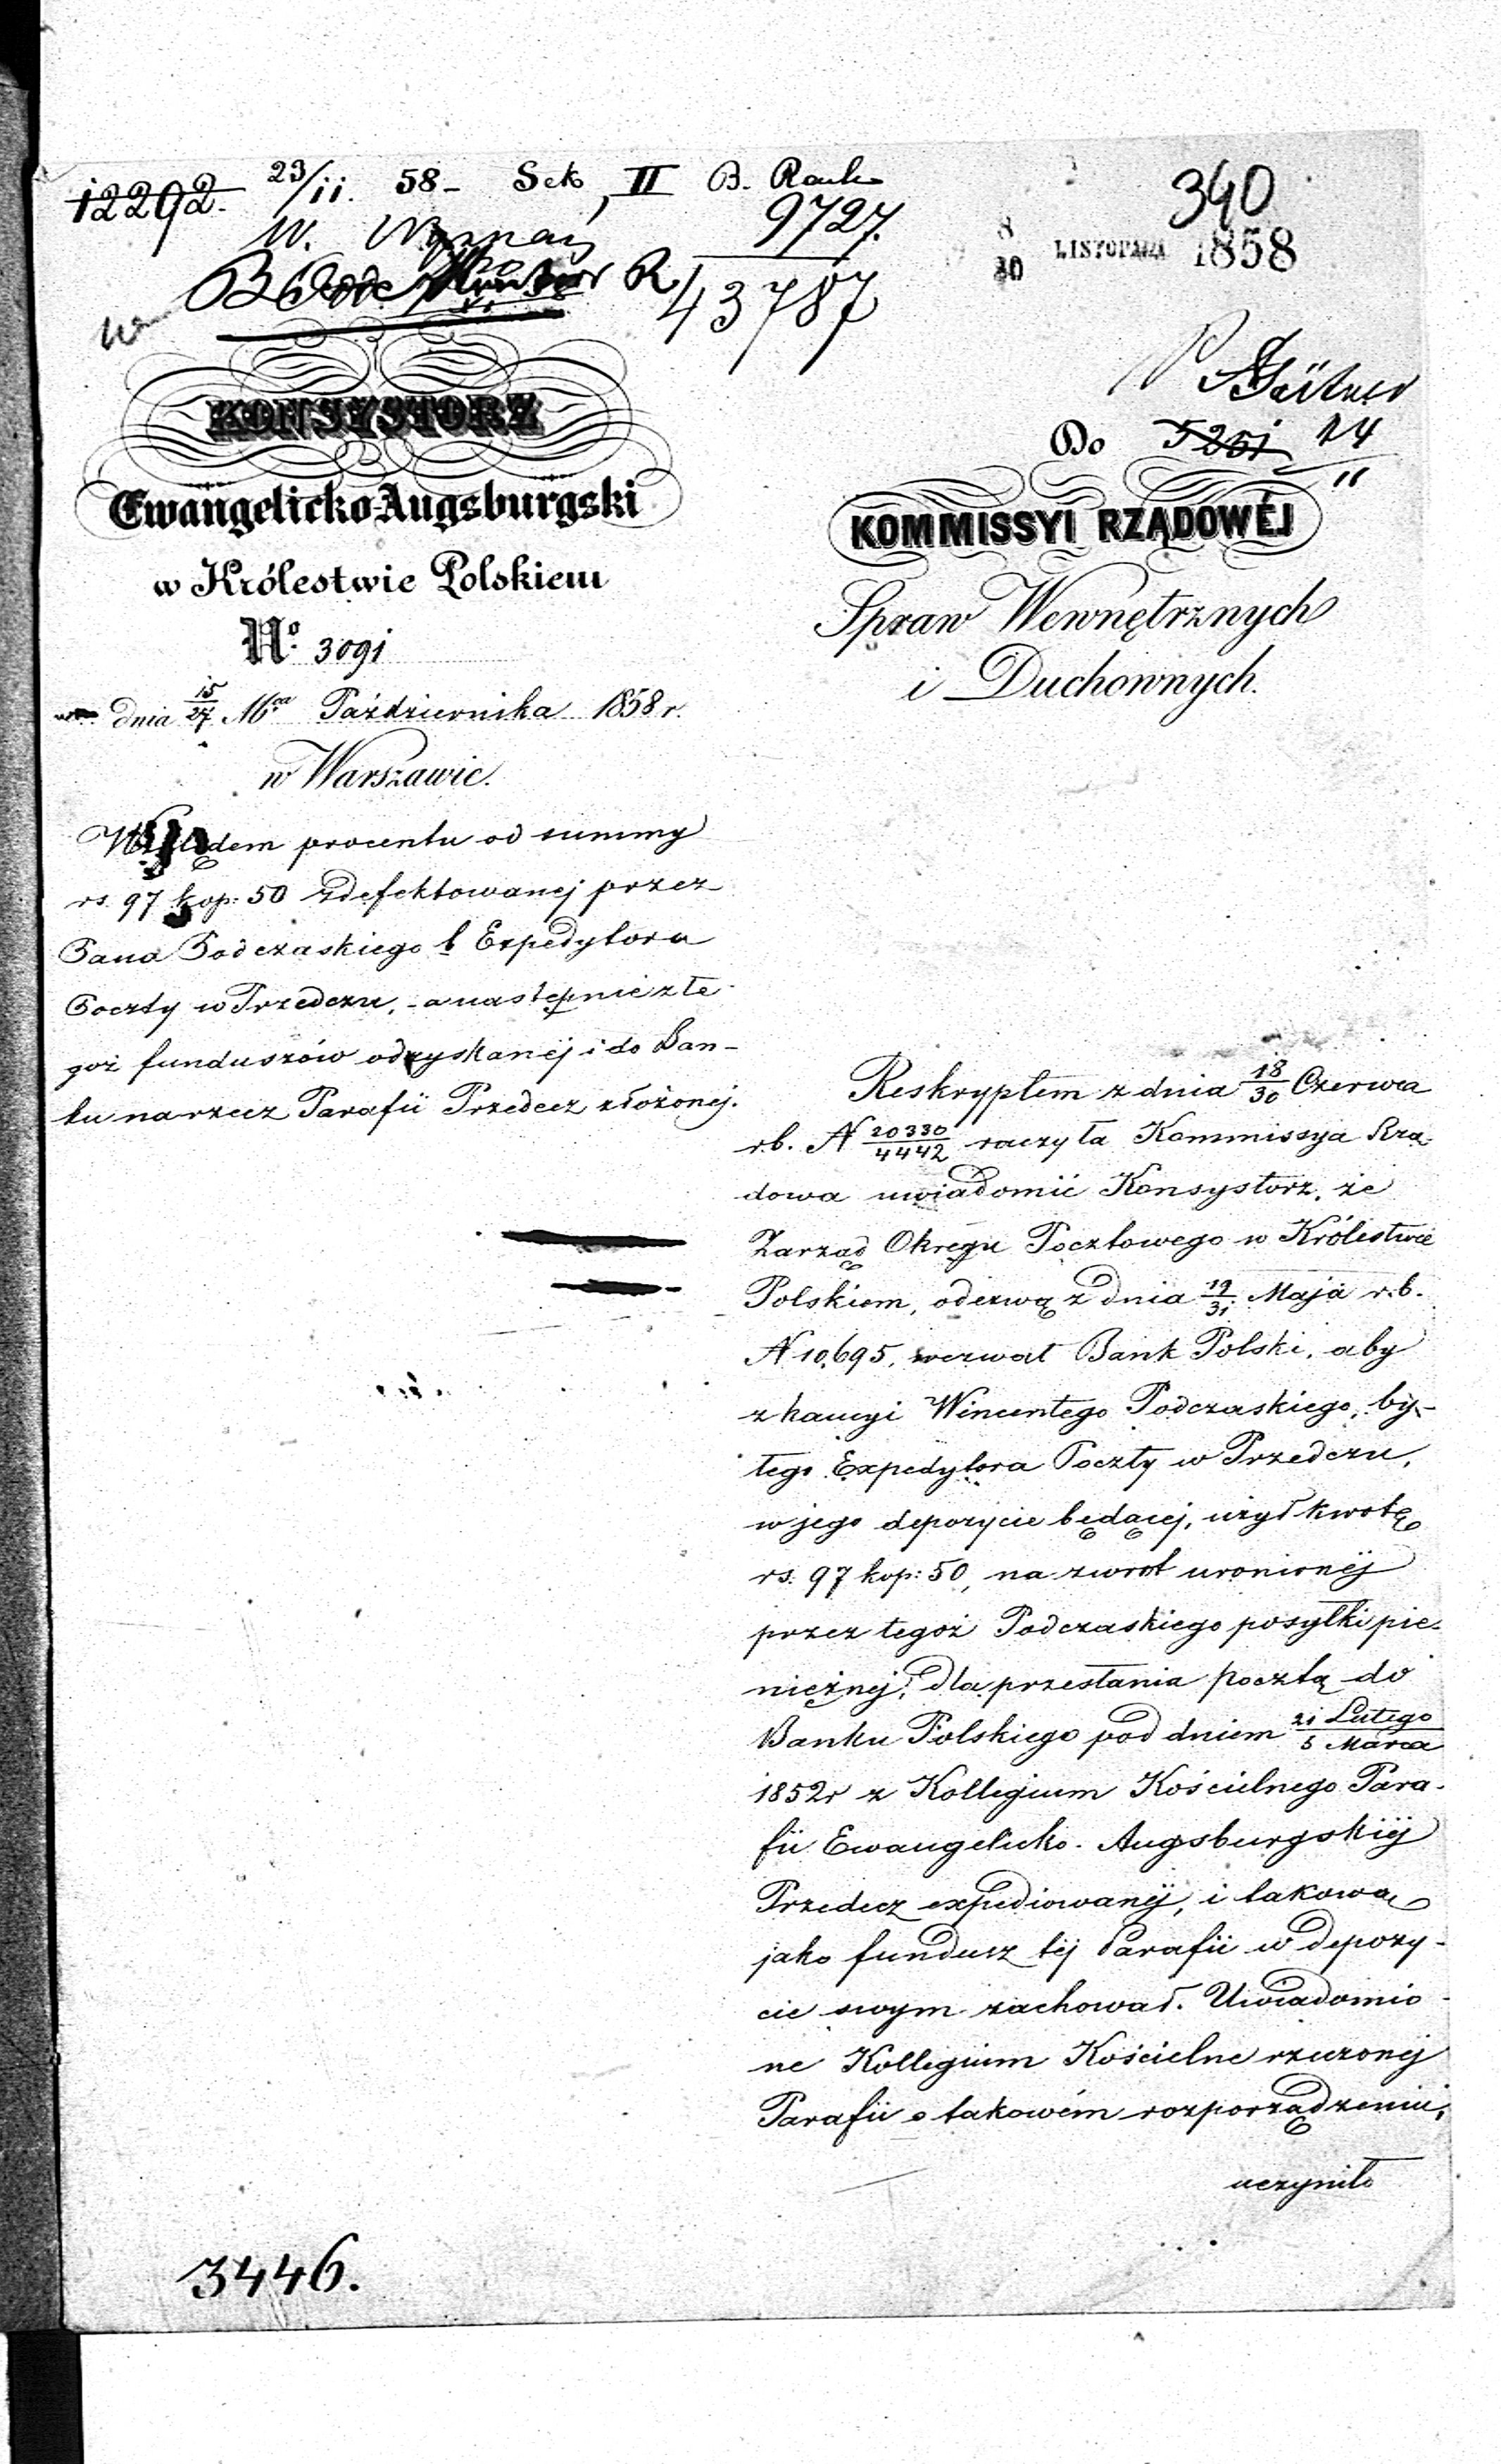 12292. 23/11. 58 - Sek, II B. Rach
9727.
43787
340
8
20 LISTOPADA 1858
KONSYSTORZ
Ewangelicko-Augsburgski
w Królestwie Polskiem
No. 3091
dnia 15/27 Mca Października 1858 r.
w Warszawie.
Względem procentu od summy
rs. 97 kop: 50 zdefektowanej przez
Pana Podczaskiego b Expedytora
Poczty w Przedczu, - a następnie z te-
goż funduszów odzyskanéj i do Ban-
ku na rzecz Parafii Przedecz złożonej.
3446.
Do 5251 24
11
KOMMISSYI RZĄDOWÉJ
Spraw Wewnętrznych
i Duchownych.
Reskryptem z dnia 18/30 Czerwca
r.b. N 20330/4442 raczyła Kommissya Rzą-
dowa uwiadomić Konsystorz, że
Zarząd Okręgu Pocztowego w Królestwie
Polskiem, odezwą z dnia 19/31 Maja r.b.
N 10,695, wezwał Bank Polski, aby
z kaucyi Wincentego Podczaskiego, by-
łego Expedytora Poczty w Przedczu,
w jego depozycie będącej, użył kwotę
rs. 97 kop: 50, na zwrot uronionéj
przez tegoż Podczaskiego posyłki pie-
niężnej, dla przesłania pocztą do
Banku Polskiego pod dniem 21 Lutego/5 Marca
1852r z Kollegium Kościelnego Para-
fii Ewangelicko-Augsburgskiéj
Przedecz expediowanéj, i takową
jako fundusz téj Parafii w depozy-
cie swym zachował. Uwiadomio-
ne Kollegium Kościelne rzeczonej
Parafii o takowém rozporządzeniu,
uczyniło